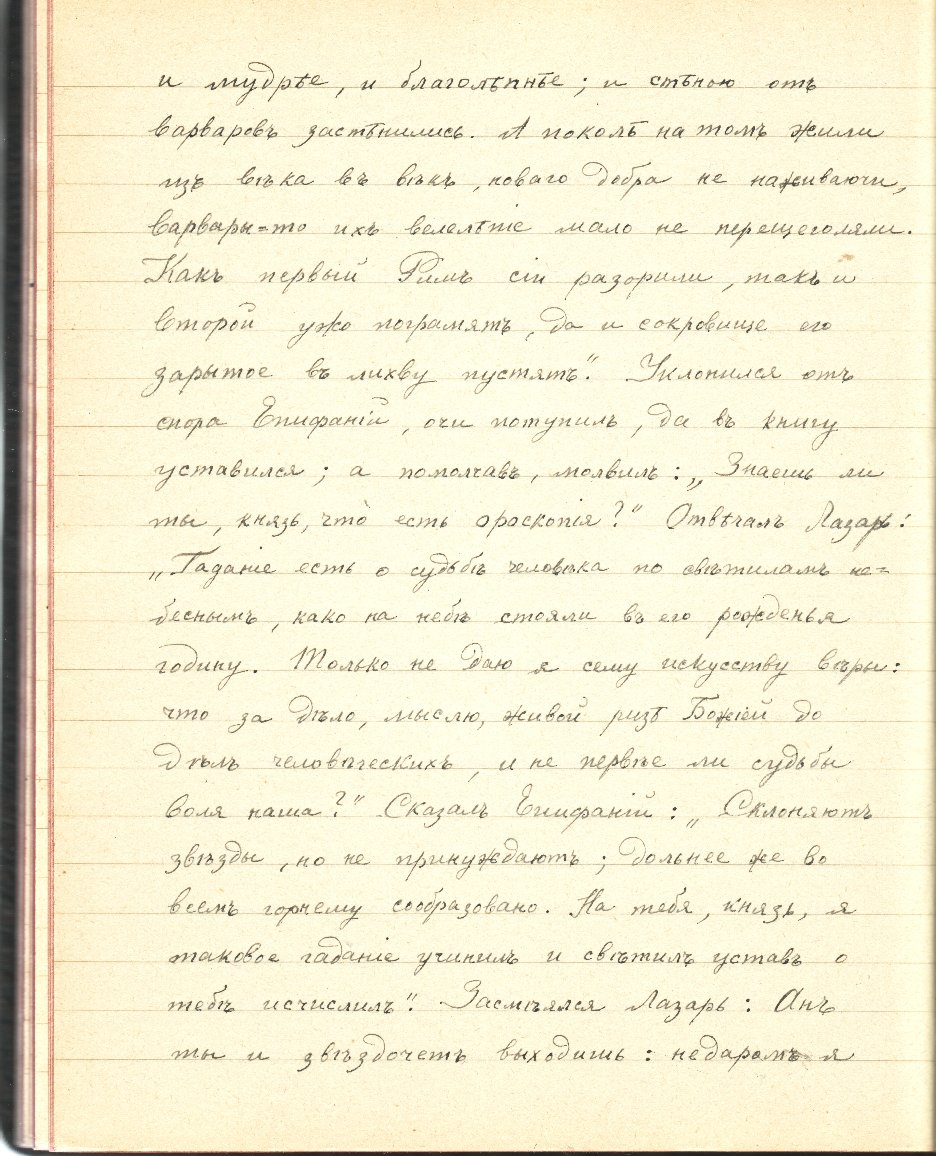 и мудрѣе, и благолѣпнѣе; и стѣною отъ
варваровъ застѣнились. А поколѣ на томъ жили
изъ вѣка въ вѣкъ, новаго добра не наживаючи,
варвары-то ихъ велелѣпіе мало не перещеголяли.
Какъ первый Римъ сіи разорили, такъ и
второй ужо пограмятъ, да и сокровище его
зарытое въ лихву пустятъ". Уклонился отъ
спора Епифаній, очи потупилъ, да въ книгу
уставился; а помолчавъ, молвилъ: „Знаешь ли
ты, князь, что̀ есть ороскопія?" Отвѣчалъ Лазарь:
„Гаданіе есть о судьбѣ человѣка по свѣтиламъ не=
беснымъ, како на небѣ стояли въ его рожденья
годину. Только не даю я сему искусству вѣры:
что за дѣло, мыслю, живой ризѣ Божіей до
дѣлъ человѣческихъ, и не первѣе ли судьбы
воля наша?" Сказалъ Епифаній: „Склоняютъ
звѣзды, но не принуждаютъ; дольнее же во
всемъ горнему сообразовано. На тебя, князь, я
таковое гаданіе учинилъ и свѣтилъ уставъ о
тебѣ исчислилъ". Засмѣялся Лазарь: Анъ
ты и звѣздочетъ выходишь: недаромъ я